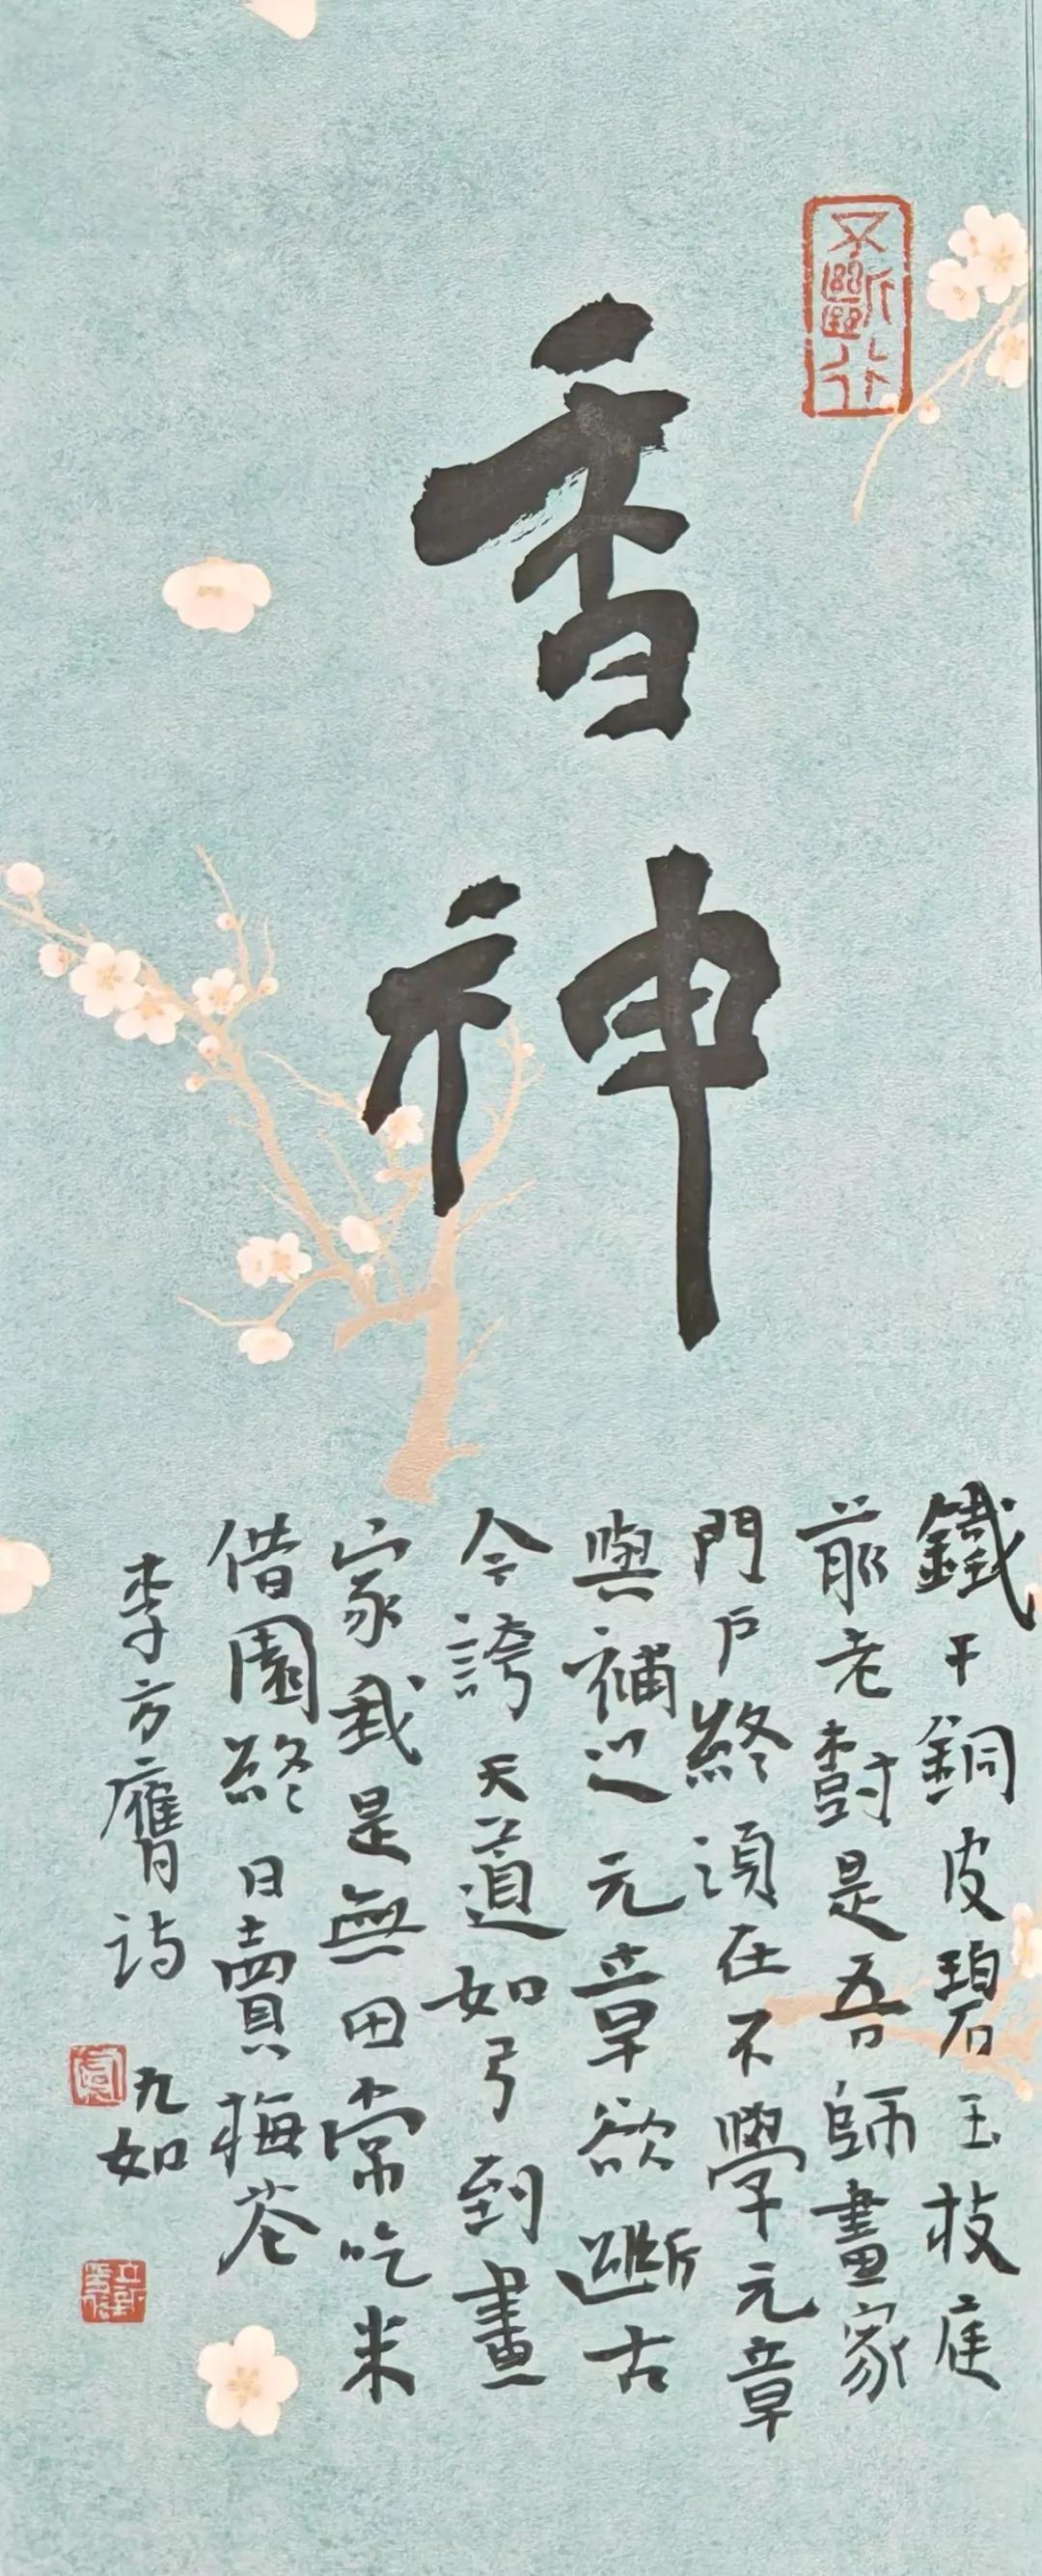 香神
鐵干銅皮碧玉枝庭
前老樹是吾師畫家
門戶終須在不學元章
與補之元章欲斷古
今誇天道如弓到畫
家我是無田常吃米
借園終日賣梅花
李方膺詩
九如